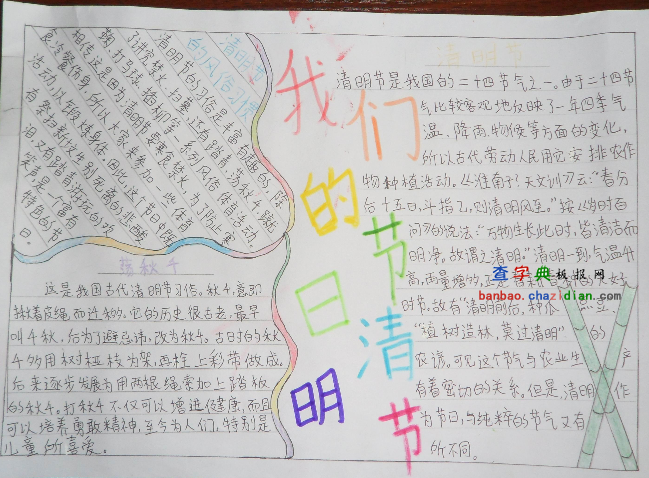 清明节
的风俗习惯
清明节的习俗是丰富有趣的，除
了讲究禁火、扫墓，还有踏青、荡秋千、蹴
鞠、打马球、插柳等一系列风俗体育活动。
相传这是因为清明节要寒食禁火，为了防止寒
食冷餐伤身，所以大家来参加一些体育
活动，以锻炼身体。因此，这个节日中既
有祭扫新坟生别死离的悲酸
泪，又有踏青游玩的欢
笑声，是一个富有
特色的节
日。
荡秋千
这是我国古代清明节习俗。秋千，意即
揪着皮绳而迁移。它的历史很古老，最早
叫千秋，后为了避忌讳，改为秋千。古时的秋
千多用树桠枝为架，再栓上彩带做成。
后来逐步发展为用两根绳索加上踏板
的秋千。打秋千不仅可以增进健康，而且
可以培养勇敢精神，至今为人们，特别是
儿童所喜爱。
我们
的节日
清明
节
清明节
清明节是我国的二十四节气之一。由于二十四节
气比较客观地反映了一年四季气
温、降雨、物候等方面的变化，
所以古代劳动人民用它安排农作
物种植活动。《淮南子·天文训》云：“春分
后十五日，斗指乙，则清明风至。”按《岁时百
问》的说法：“万物生长此时，皆清洁而
明净。故谓之清明。”清明一到，气温升
高，雨量增多，正是
时节。故有“清明前后，种
“植树造林，莫过清明”的
农谚。可见这个节气与农业生产
有着密切的关系。但是，清明作
为节日，与纯粹的节气又有
所不同。
查字典板报网
banbao.chazidian.com